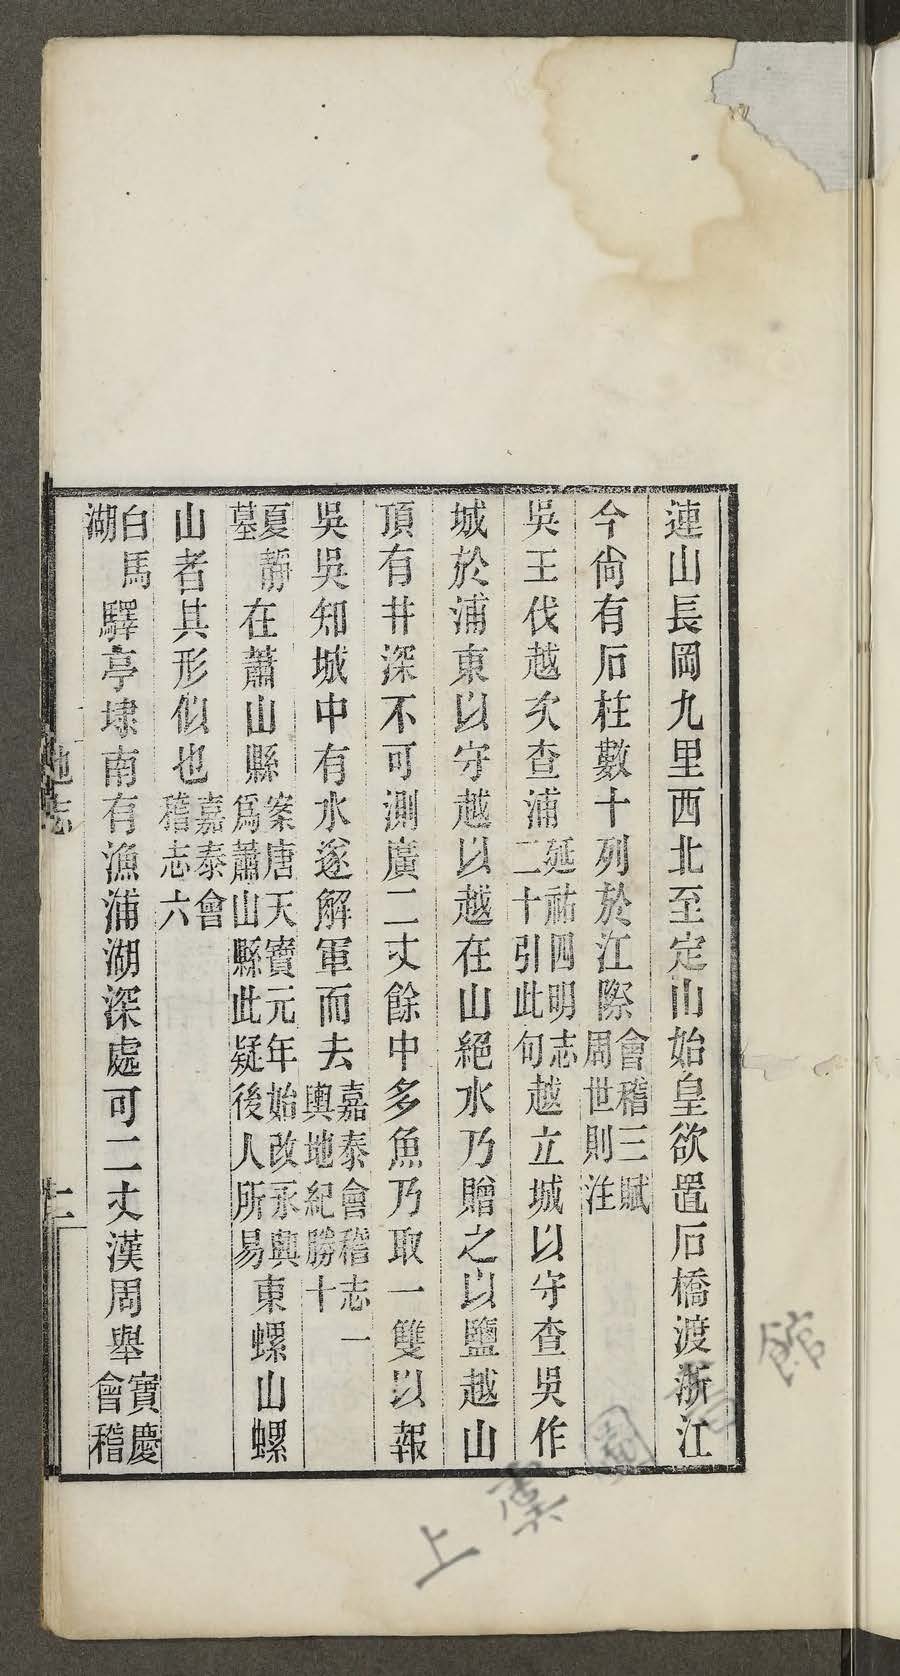 連山長岡九里西北至定山始皇欲置石橋渡浙江
今尚有石柱數十列於江際會稽三賦周世則注
吳王伐越次查浦延祐四明志二十引此句越立城以守查吳作
城於浦東以守越以越在山絕水乃贈之以鹽越山
頂有井深不可測廣二丈餘中多魚乃取一雙以報
吳吳知城中有水遂解軍而去嘉泰會稽志一輿地紀勝十
夏靜墓在蕭山縣案唐天寶元年始改永興爲蕭山縣此疑後人所易東螺山螺
山者其形似也嘉泰會稽志六
白馬湖驛亭埭南有漁浦湖深處可二丈漢周舉寶慶會稽
地志
上虞圖書館